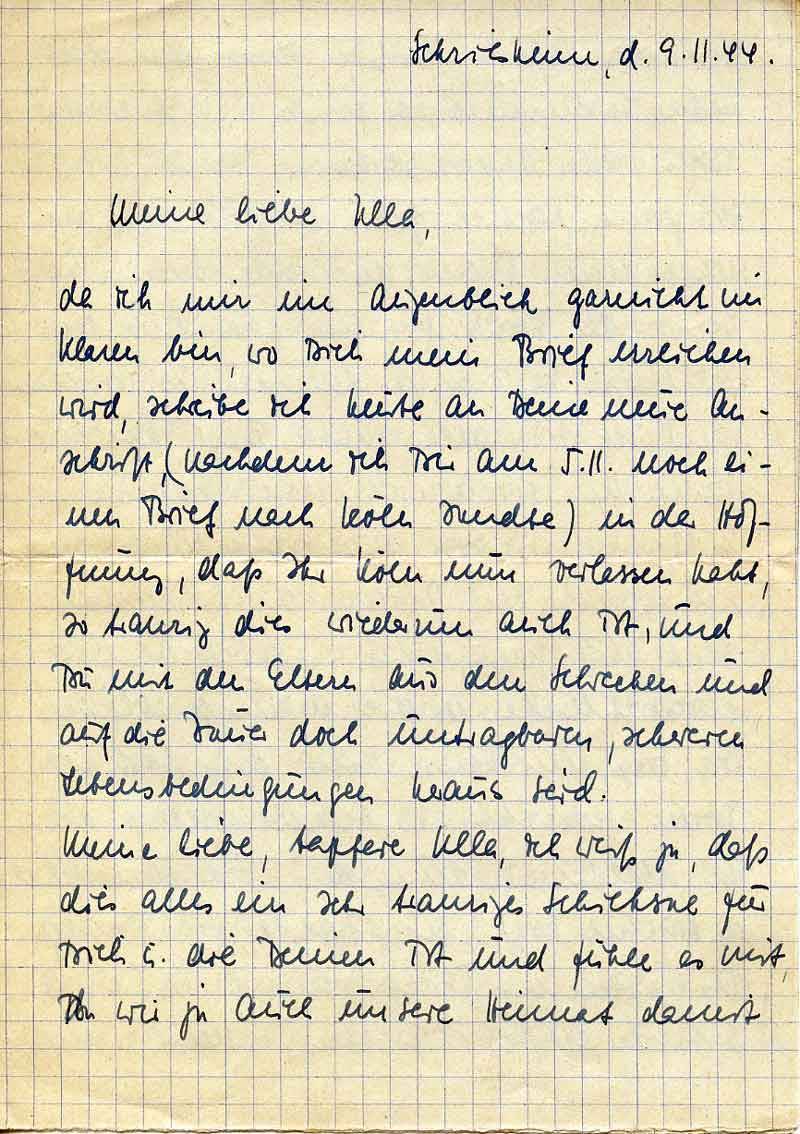 Schriesheim, d. 9.11.44.
Meine liebe Ulla,
da ich mir im Augenblick garnicht im
Klaren bin, wo Dich mein Brief erreichen
wird, schreibe ich heute an Deine neue An-
schrift, (nachdem ich Dir am 5.11. noch ei-
nen Brief nach Köln sandte) in der Hof-
fnung, daß Ihr Köln nun verlassen habt,
so traurig dies wiederum auch ist, und
Du mit den Eltern aus den Schrecken und
auf die Dauer doch untragbaren, schweren
Lebensbedingungen heraus seid.
Meine liebe, tapfere Ulla, ich weiß ja, daß
dies alles ein sehr trauriges Schicksal für
Dich u. die Deinen ist und fühle es mit,
wie ja auch unsere Heimat damit